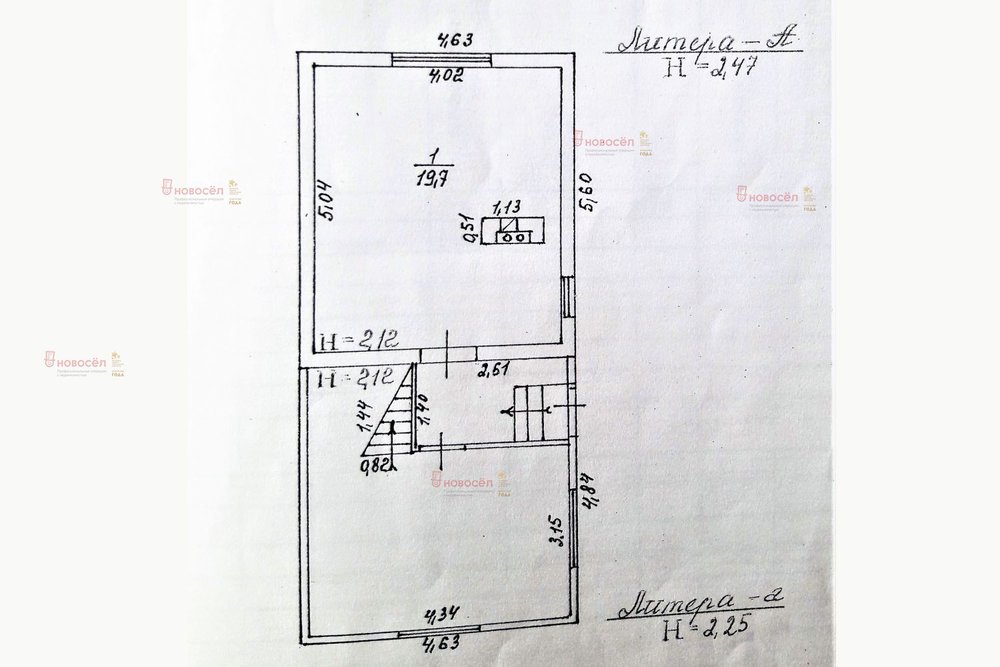 4,63
Литера – А
Н = 2,47
4,02
1
19,7
5,04
5,60
1,13
0,51
новосёл
года
новосёл
года
новосёл
года
Н = 2,12
2,61
новосёл
года
Н = 2,12
1,44
1,40
0,82
новосёл
года
4,84
3,15
4,34
4,63
Литера – а
Н = 2,25